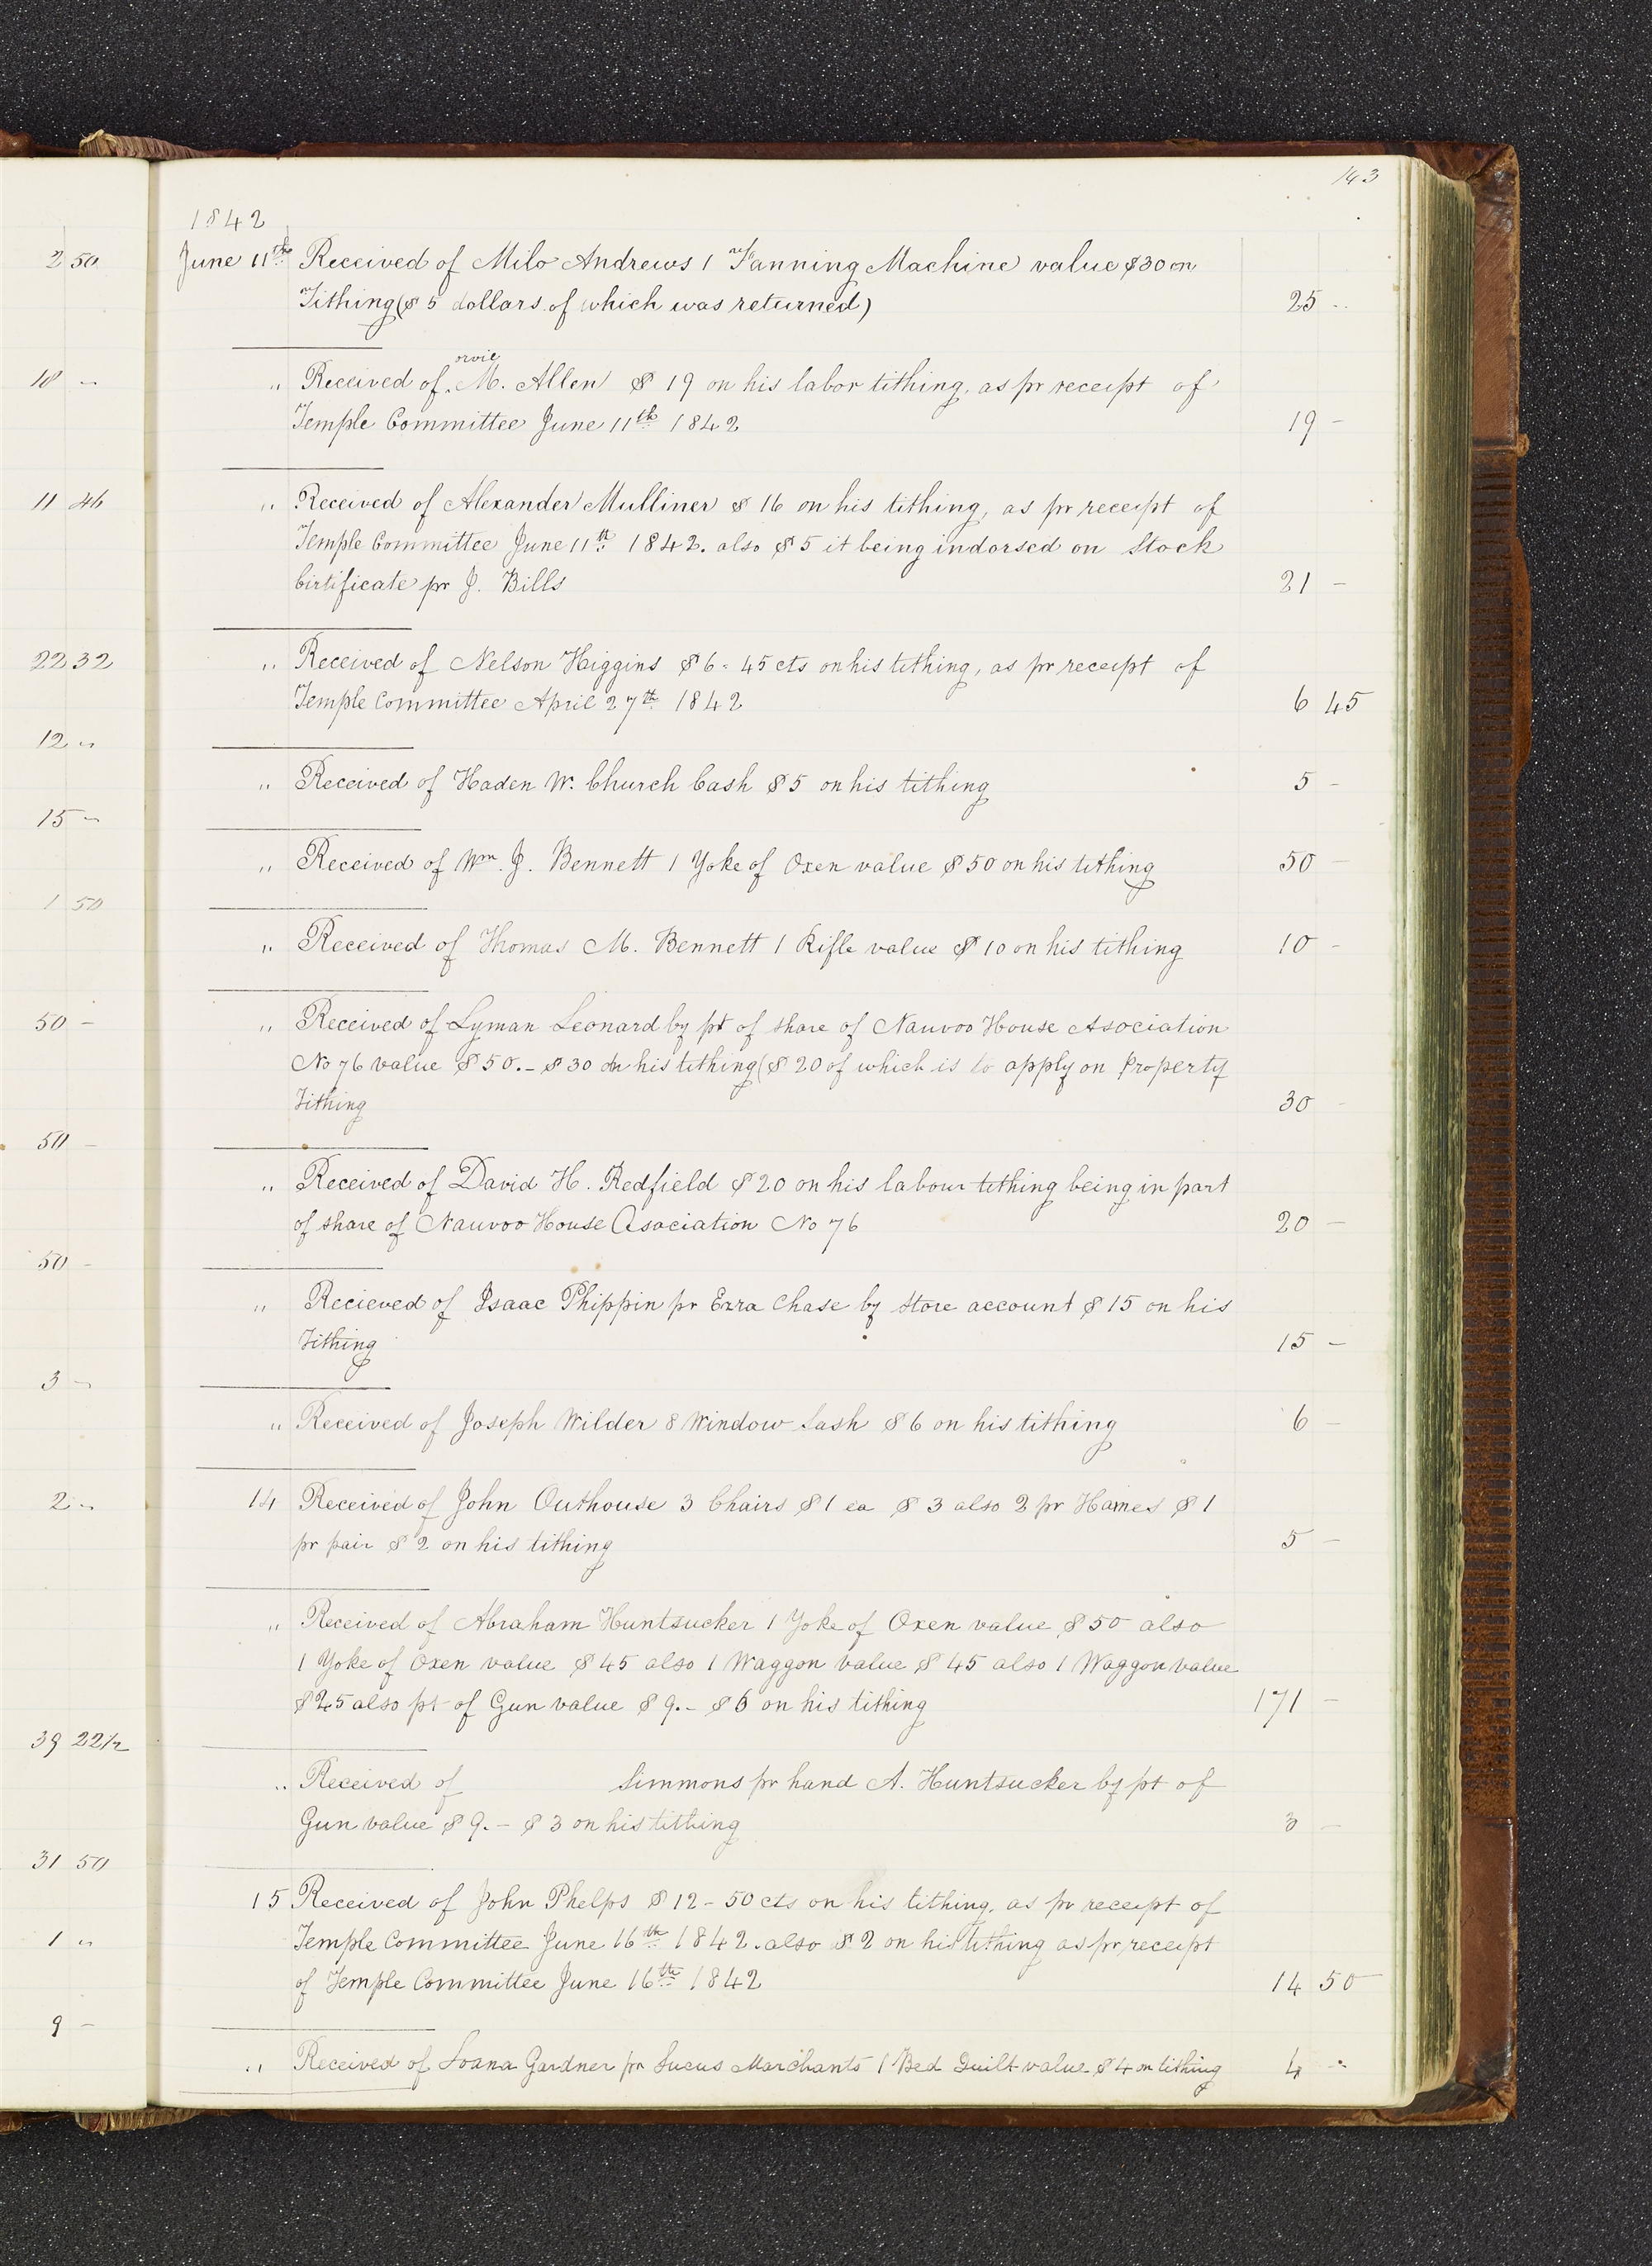 143
1842
2 50 June 11th Received of Milo Andrews 1 Fanning Machine value $30 on
Tithing ($ 5 dollars of which was returned) 25 ..
orvie
10 - " Received of M. Allen $ 19 on his labor tithing, as pr receipt of
Temple Committee June 11th 1842 19 -
11 46 " Received of Alexander Mulliner $ 16 on his tithing, as pr receipt of
Temple Committee June 11th 1842. also $ 5 it being indorsed on Stock
Cirtificate pr J. Bills 21 -
22 32 " Received of Nelson Higgins $ 6 - 45 cts on his tithing, as pr receipt of
Temple Committee April 27th 1842 6 45
12 "
" Received of Haden W. Church Cash $ 5 on his tithing 5 -
15 -
" Received of Wm. J. Bennett 1 Yoke of Oxen value $ 50 on his tithing 50 -
1 50
" Received of Thomas M. Bennett 1 Rifle value $ 10 on his tithing 10 -
50 - " Received of Lyman Leonard by pt of share of Nauvoo House Asociation
No 76 value $ 50. - $ 30 on his tithing ($ 20 of which is to apply on Property
Tithing 30 -
50 -
" Received of David H. Redfield $ 20 on his labour tithing being in part
of share of Nauvoo House Asociation No 76 20 -
50 -
" Recieved of Isaac Phippin pr Ezra Chase by Store account $ 15 on his
Tithing 15 -
3 -
" Received of Joseph Wilder 8 Window Sash $ 6 on his tithing 6 -
2 " 14 Received of John Outhouse 3 Chairs $ 1 ea $ 3 also 2 pr Hames $ 1
pr pair $ 2 on his tithing 5 -
" Received of Abraham Huntsucker 1 Yoke of Oxen value $ 50 also
1 Yoke of Oxen value $ 45 also 1 Waggon value $ 45 also 1 Waggon value
$ 25 also pt of Gun value $ 9. - $ 6 on his tithing 171 -
39 22 1/2
" Received of Simmons pr hand A. Huntsucker by pt of
Gun value $ 9. - $ 3 on his tithing 3 -
31 50
15 Received of John Phelps $ 12 - 50 cts on his tithing, as pr receipt of
1 " Temple Committee June 16th 1842. also $ 2 on his tithing as pr receipt
of Temple Committee June 16th 1842 14 50
9 -
" Received of Gardner pr Marchants 1 Bed Quilt value $ 4 on tithing 4 -